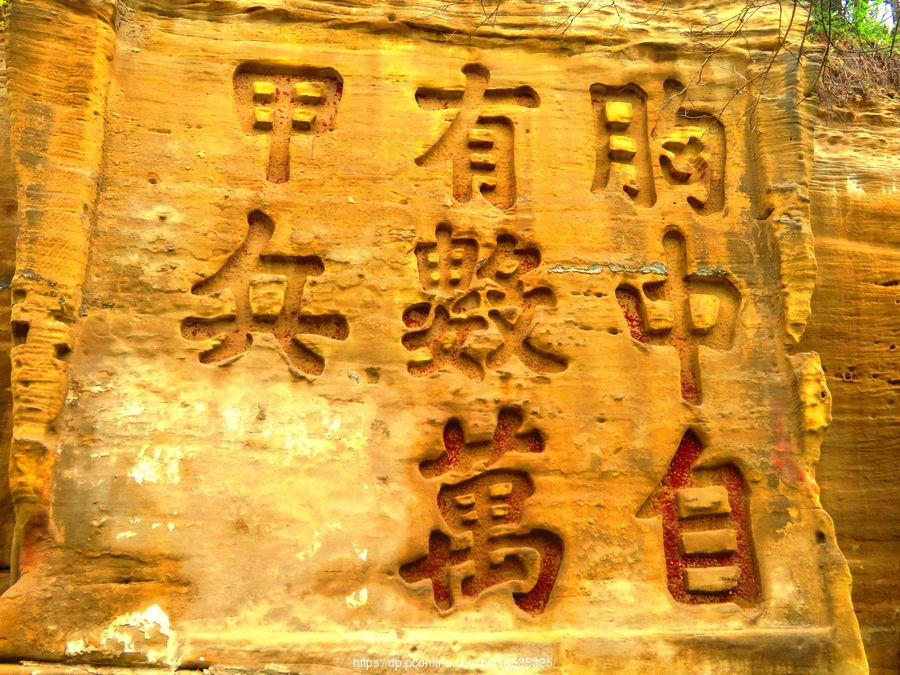 胸中自
有數萬
甲兵
https://dp.pconline.com.cn/18535325/